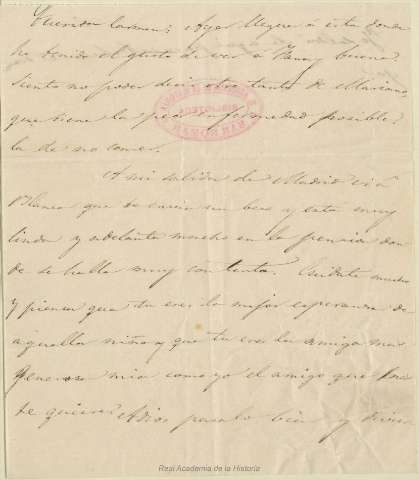 Querida Carmen: Ayer llegué a esta donde
he tenido el gusto de ver a Fanny buena.
Siento no poder decir otro tanto de Mariano,
que tiene la peor enfermedad posible,
la de no comer.
A mi salida de Madrid vi a
Blanca que te envía un beso y está muy
linda y adelanta mucho en la pensión don
de se halla muy contenta. Cuídate mucho
y piensa que tu eres la mejor esperanza de
aquella niña y que tu eres la amiga mas
generosa mia como yo el amigo que
te quiere. Adios pásalo bien y
Real Academia de la Historia